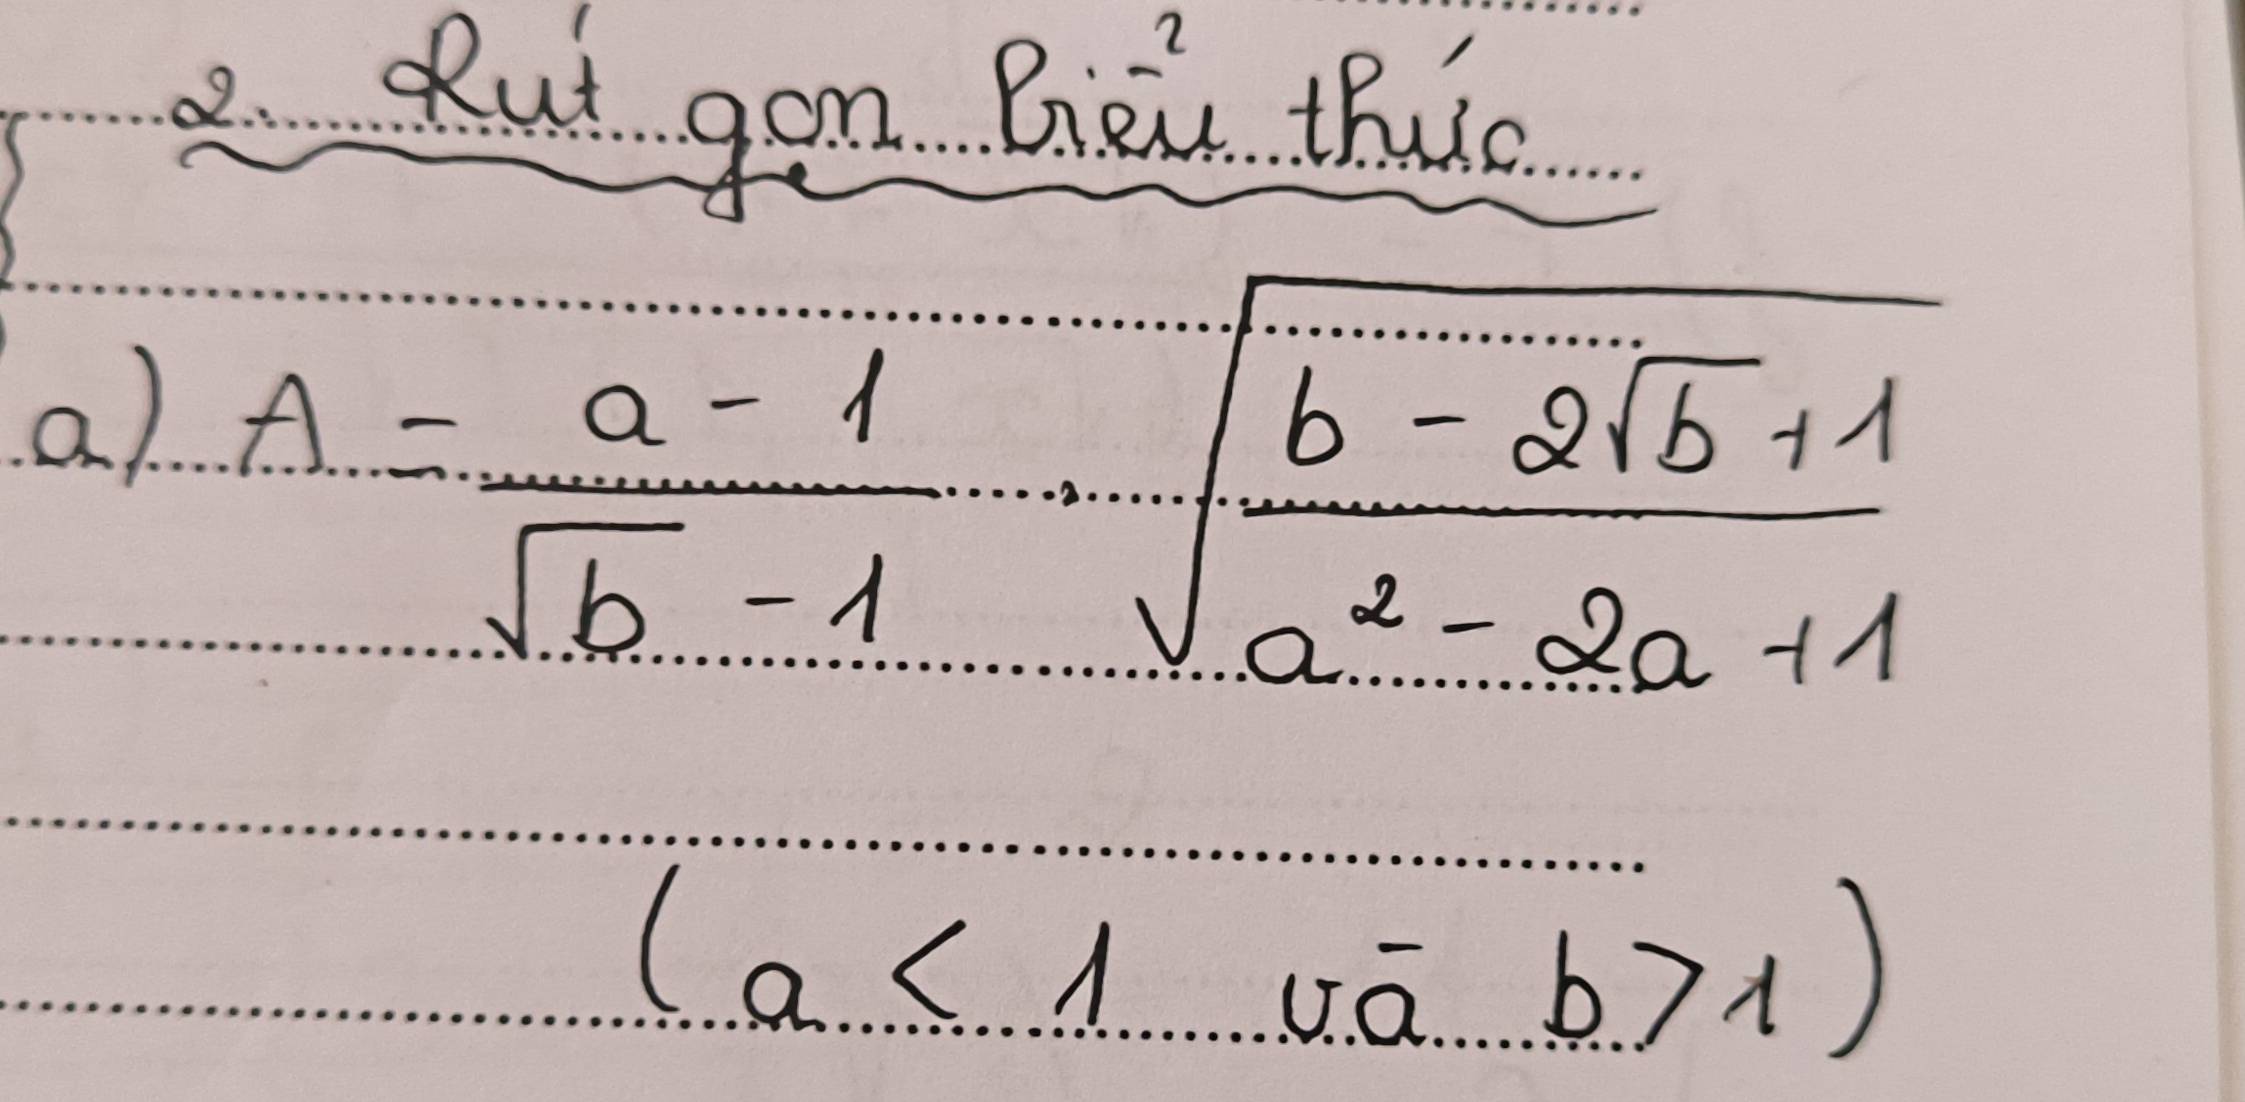 2. Rút gọn biểu thức
a) A = \frac{a - 1}{\sqrt{b} - 1} . \sqrt{\frac{b - 2\sqrt{b} + 1}{a^2 - 2a + 1}}
(a < 1 và b > 1)